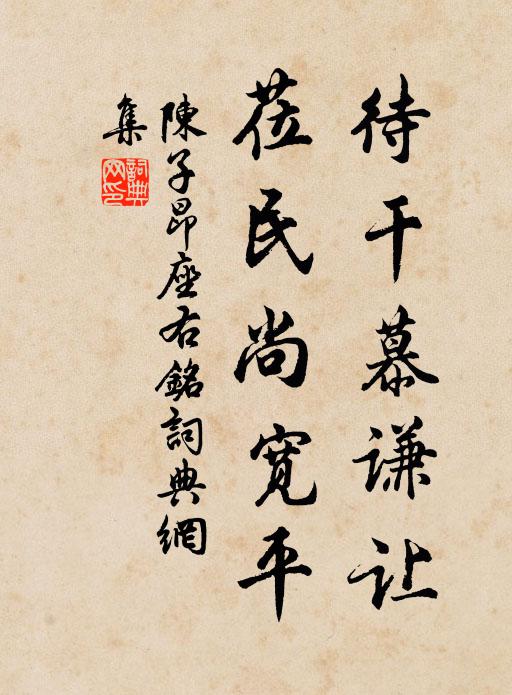 待干慕谦让
莅民尚宽平
陳子昂座右銘詞典網
集
詞典
网印